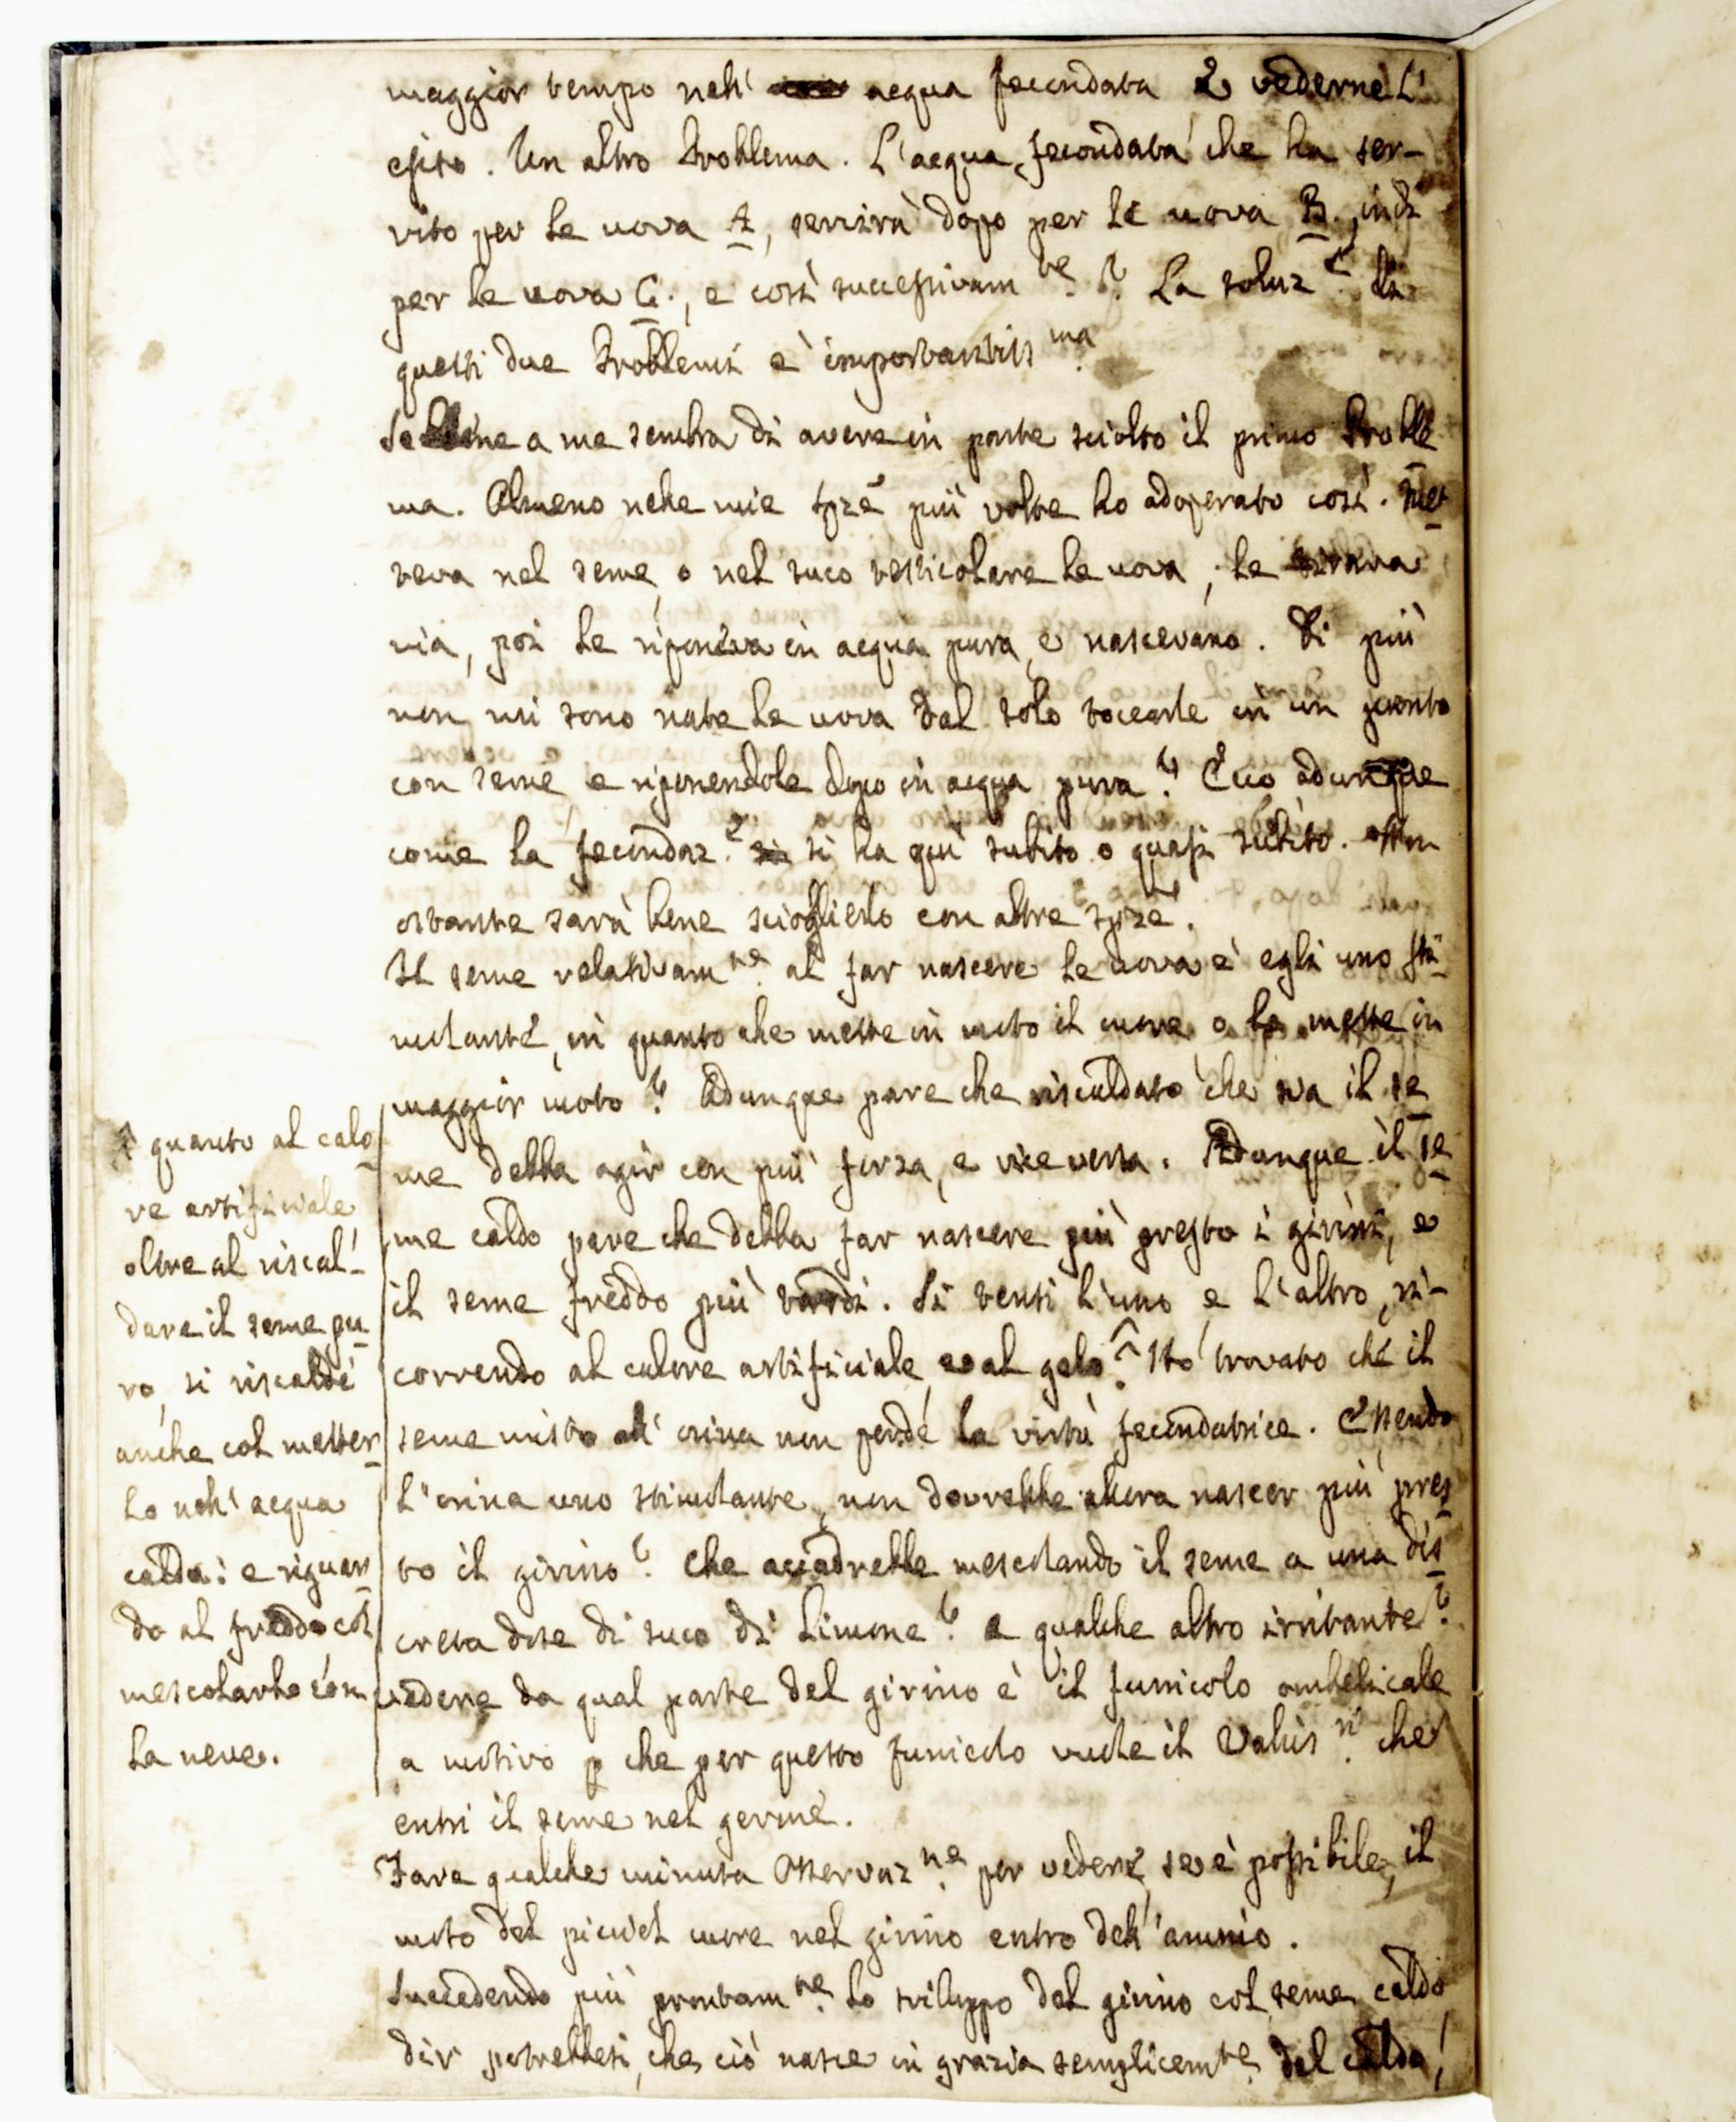 maggior tempo nell' acqua fecondata e vederne l'
esito. Un altro Problema. L'acqua fecondata che ha ser-
vito per le uova A, servirà dopo per le uova B, indi
per le uova C., e così successivam.te? La soluz.e di
questi due Problemi è importantiss.ma
Sebbene a me sembra di avere in parte sciolto il primo Proble
ma. Almeno nelle mie spze più volte ho adoperato così. Met
teva nel seme, o nel suco testicolare le uova, le tirava
via, poi le riponeva in acqua pura, e nascevano. Di più
non mi sono nate le uova dal solo toccarle in un punto
con seme, e riponendole dopo in acqua pura? Ecco adunque
come la fecondaz.e si ha qui subito o quasi subito. Non
ostante sarà bene scioglierlo con altre spze.
Il seme relativam.te al far nascere le uova è egli uno sti
molante, in quanto che mette in moto il cuore o lo mette in
maggior moto? Adunque pare che riscaldato che sia il se
me debba agir con più forza, e viceversa. Adunque il se
me caldo pare che debba far nascere più presto i girini, e
il seme freddo più tardi. Si tenti l'uno, e l'altro, ri-
correndo al calore artificiale, e al gelo. Ho trovato che il
seme misto all' orina non perde la virtù fecondatrice. Essendo
l'orina uno stimolante, non dovrebbe allora nascer più pres
to il girino? Che accadrebbe mescolando il seme a una dis
creta dose di suco di Limone? a qualche altro irritante?
Vedere da qual parte del girino è il funicolo ombelicale
a motivo p che per questo funicolo vuole il Valisn.ri che
entri il seme nel germe.
Fare qualche minuta Osservaz.ne per vedere, se è possibile, il
moto del picciol cuore nel girino entro dell'amnio.
Succedendo più prontam.te lo sviluppo del girino col seme caldo
dir potrebbesi, che ciò nasce in grazia semplicem.te del caldo,
quanto al calo
re artificiale
oltre al riscal-
dare il seme pu
ro, si riscaldi
anche col metter
lo nell'acqua
calda: e riguar
do al freddo col
mescolarlo con
la neve.